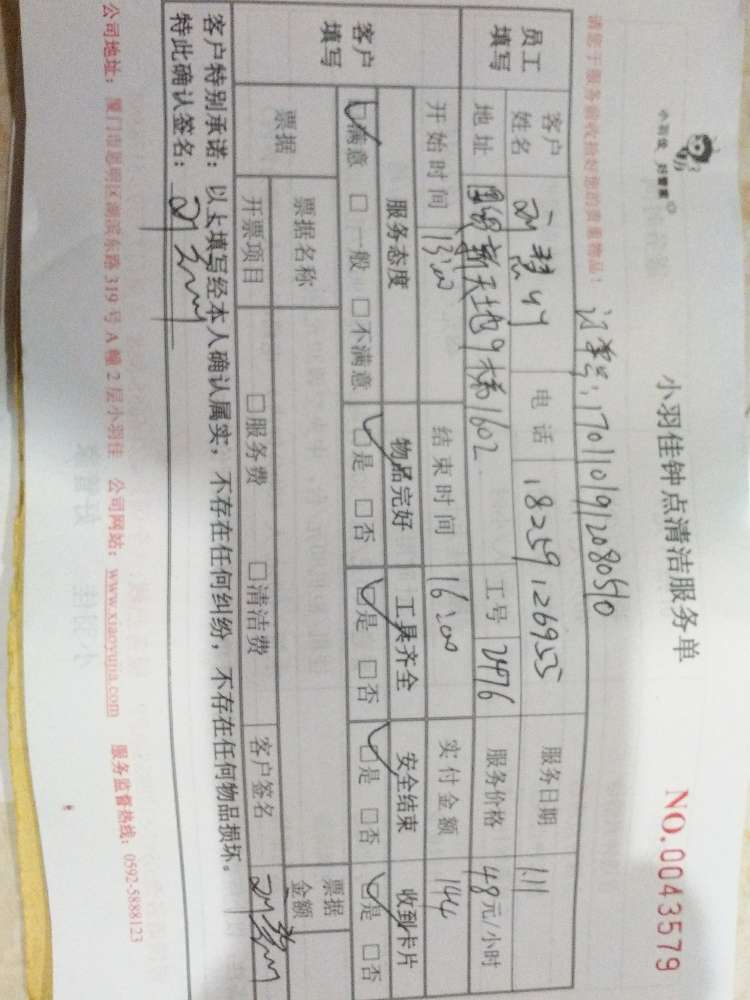 小羽佳 好管家
小羽佳钟点清洁服务单
NO.0043579
请您于服务验收拾好您的贵重物品!
订单号:1701101912080510
员工填写
客户姓名 电话 18259126955 服务日期 1.11
地址 新天地9梯1602 工号 2476 服务价格 48元/小时
客户填写
开始时间 13:00 结束时间 16:00 实付金额 144
服务态度 物品完好 工具齐全 安全结束 收到卡片
☑满意 □一般 □不满意 ☑是 □否 ☑是 □否 ☑是 □否 ☑是 □否
票据 票据名称 票据金额
开票项目 □服务费 □清洁费 客户签名
客户特别承诺:以上填写经本人确认属实,不存在任何纠纷,不存在任何物品损坏。
特此确认签名:
公司地址:厦门市思明区湖滨东路319号A幢2层小羽佳 公司网站:www.xiaoyujia.com 服务监督热线:0592-5888123